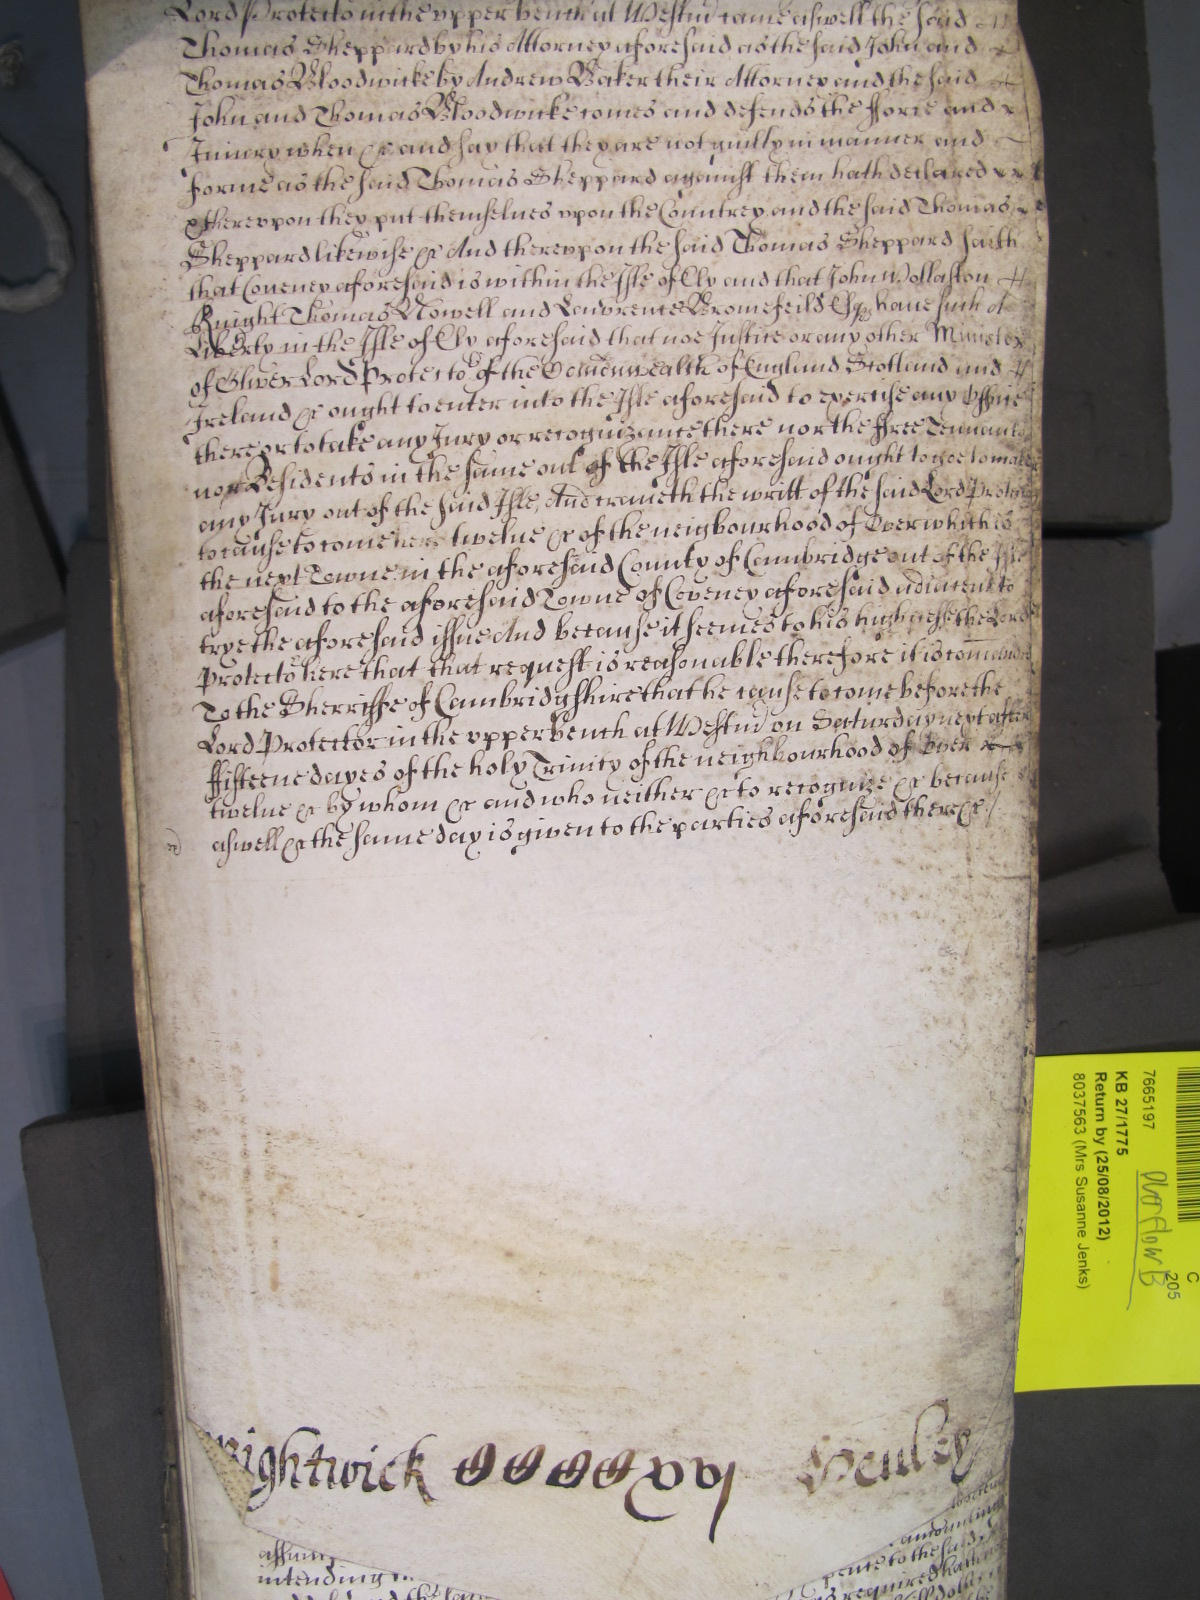 Lord Protector in the upper bench at Westmr came aswell the said
Thomas Sheppard by his Attorney aforesaid as the said John and
Thomas Woodwicke by Andrew Baker their Attorney and the said
John and Thomas Woodwicke comes and defends the fforce and
Iniury when &c and say that they are not guilty in manner and
forme as the said Thomas Sheppard against them hath declared
& thereupon they put themselves upon the Countrey and the said Thomas
Sheppard likewise &c And thereupon the said Thomas Sheppard saith
that Coveney aforesaid is within the Isle of Ely and that John Wollaston
Knight Thomas Nowell and Lawrence Bromefeild Esqs have such a
Liberty in the Isle of Ely aforesaid that noe Justice or any other Minister
of Oliver Lord Protector of the Comonwealth of England Scotland and
Ireland &c ought to enter into the Isle aforesaid to exercise any Office
there or to take any Jury or recognizance there nor the ffree Tennants
nor Residents in the same out of the Isle aforesaid ought to goe to make
any Jury out of the said Isle, And craveth the writt of the said Lord Protector
to cause to come here twelve &c of the neigbourhood of Over which is
the next Towne in the aforesaid County of Cambridge out of the Isle
aforesaid to the aforesaid Towne of Coveney aforesaid adiacent to
trye the aforesaid issue And because it seemes to his highness the Lord
Protector here that that request is reasonable therefore it is comanded
To the Sherriffe of Cambridgshire that he cause to come before the
Lord Protector in the upper bench at Westmr on Saturday next after
ffifteene dayes of the holy Trinity of the neighbourhood of Over
twelve &c by whom &c and who neither &c to recognize &c because
aswell &c the same day is given to the parties aforesaid there &c
Wightwick CCCCxvj Henley
assum
intending
amounting
pente to the said
required hath
7665197
KB 27/1775
Return by (25/08/2012)
8037563 (Mrs Susanne Jenks)
overflow B
C
205